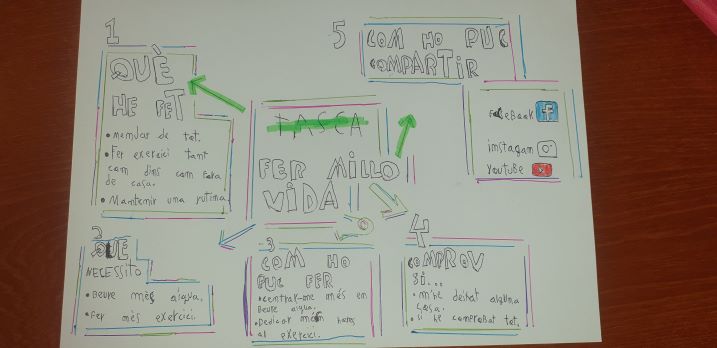 1
QUÈ
HE FET
• menjar de tot.
• Fer exercici tant
com dins com fora
de casa.
• Mantenir una rutina
TASCA
FER MILLO
VIDA
2
QUE
NECESSITO
• Beure mès aigua.
• Fer mès exercici.
3
COM HO
PUC FER
• centrar-me més en
Beure aigua.
• Dedicar més hores
al exercici.
4
COMPROV
SI...
• m'he deixat alguna
casa.
• si he comprobat tot.
5
COM HO PUC
COMPARTIR
FaceBook
instagam
Youtube